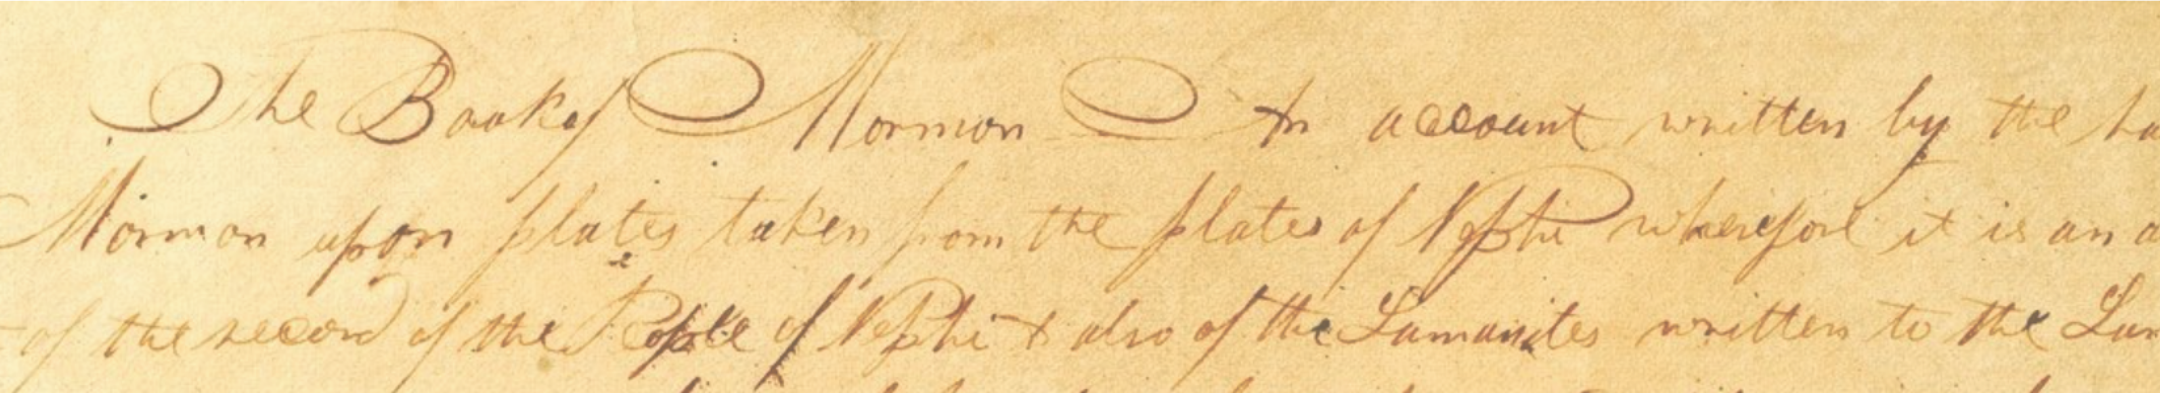 The Book of Mormon An account written by the ha
Mormon upon plates taken from the plates of Nephi wherefore it is an a
of the record of the People of Nephi & also of the Lamanites written to the Lam